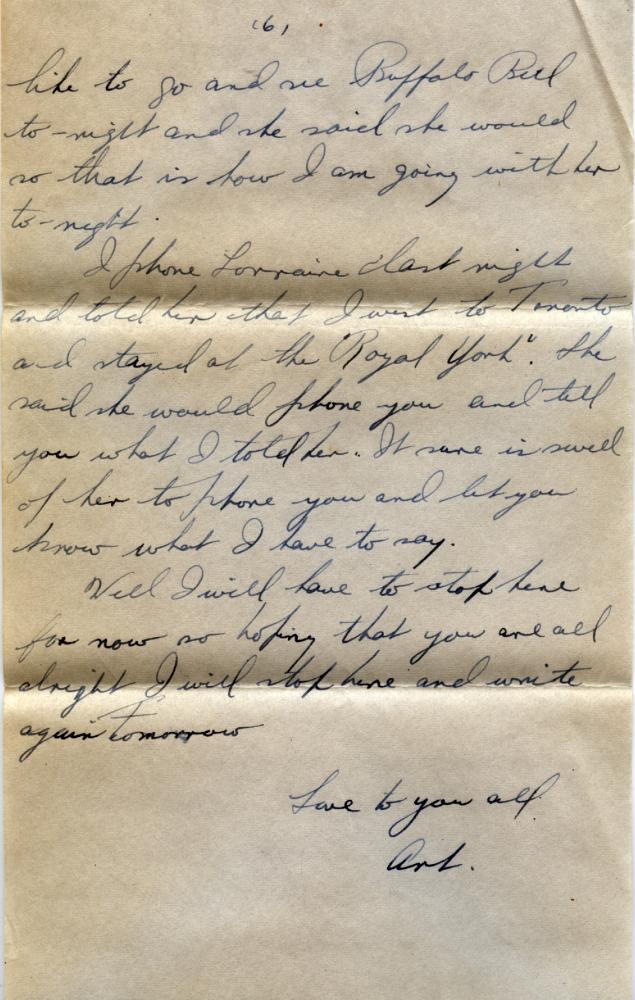 (6)
like to go and see Buffalo Bill
to-night and she said she would
so that is how I am going with her
to-night.
I phone Lorraine last night
and told her that I went to Toronto
and stayed at the "Royal York". She
said she would phone you and tell
you what I told her. It sure is swell
of her to phone you and let you
know what I have to say.
Well I will have to stop here
for now so hoping that you are all
alright I will stop here and write
again tomorrow
Love to you all
Art.